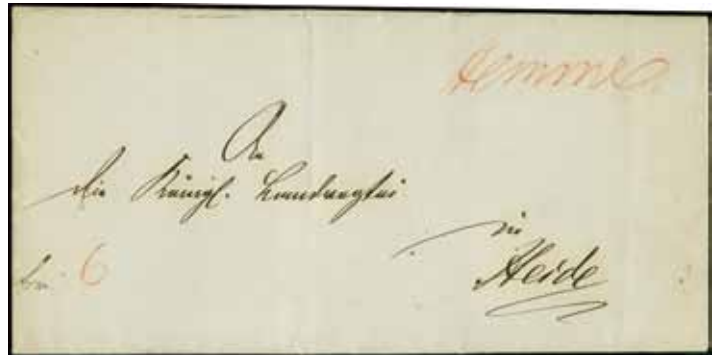 Hemme
An
die Königl. Landvogtei
in
Heide
6